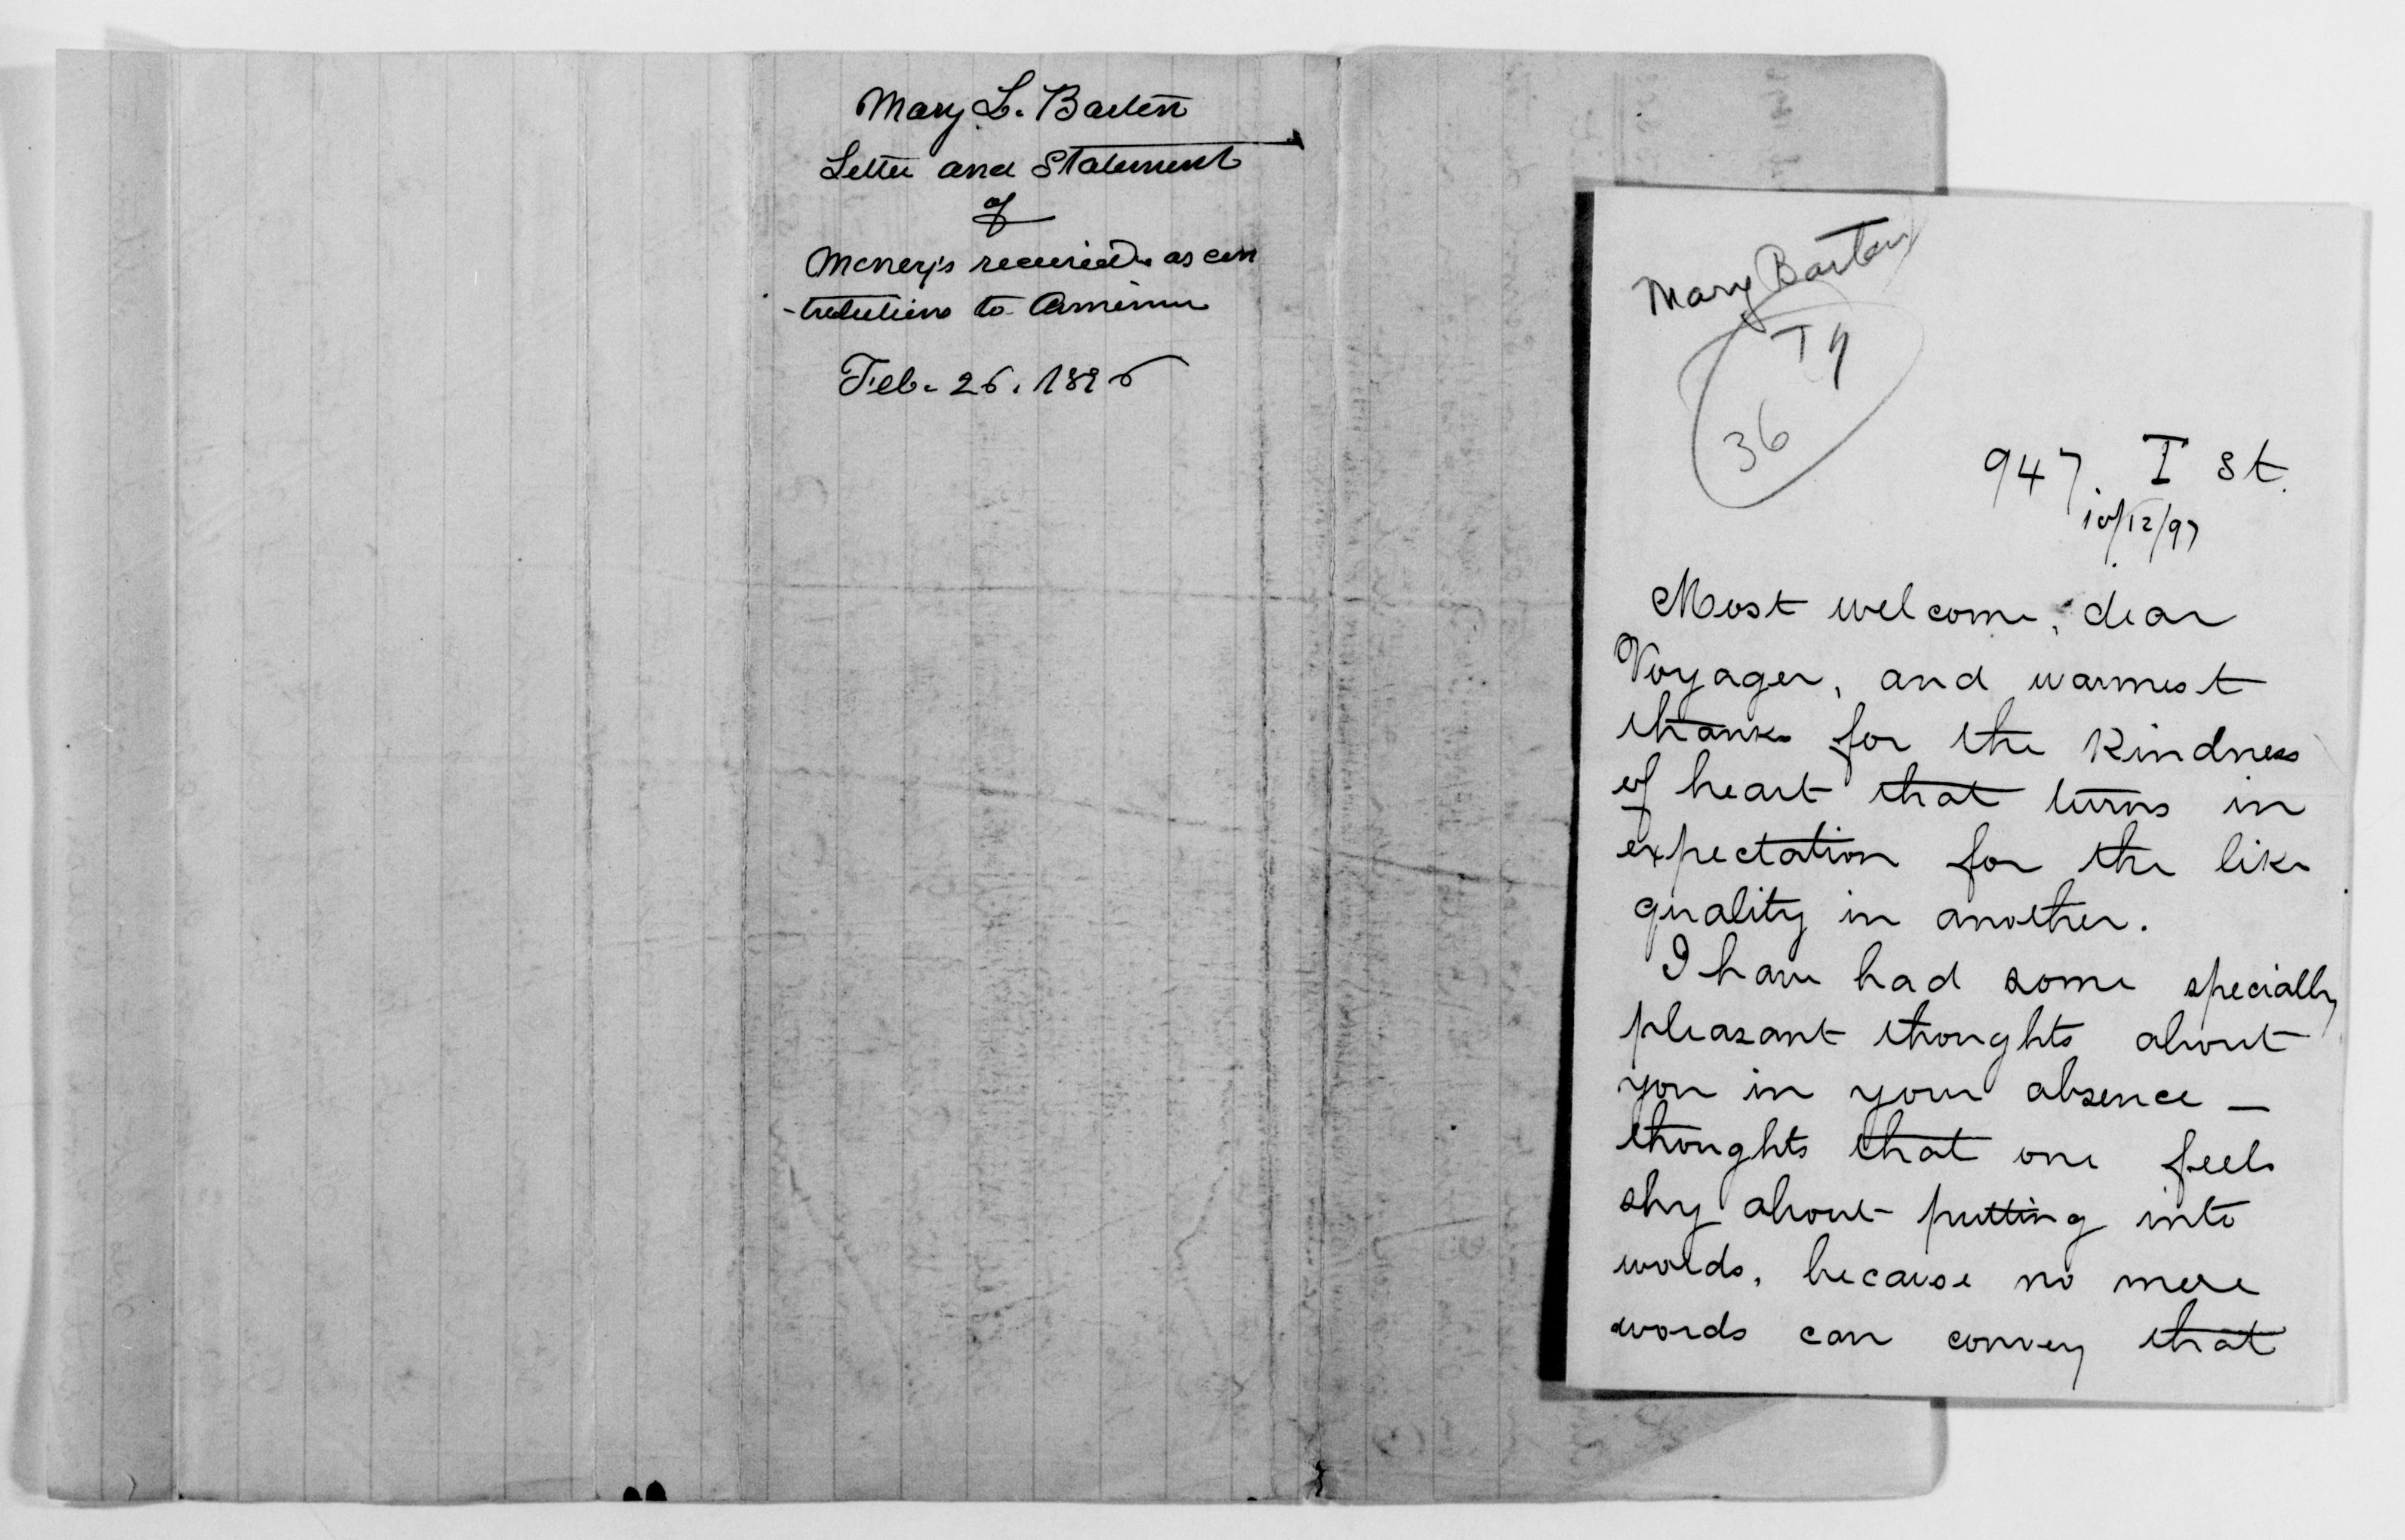 Mary L. Barton
Letter and Statement
of
Moneys received as con
-tributions to Armenia
Feb. 26. 1896
Mary Barton
36
947 I St.
10/12/97
Most welcome, dear
Voyager, and warmest
thanks for the kindness
of heart that turns in
expectation for the like
quality in another.
I have had some specially
pleasant thoughts about
you in your absence —
thoughts that one feels
shy about putting into
words, because no mere
words can convey that